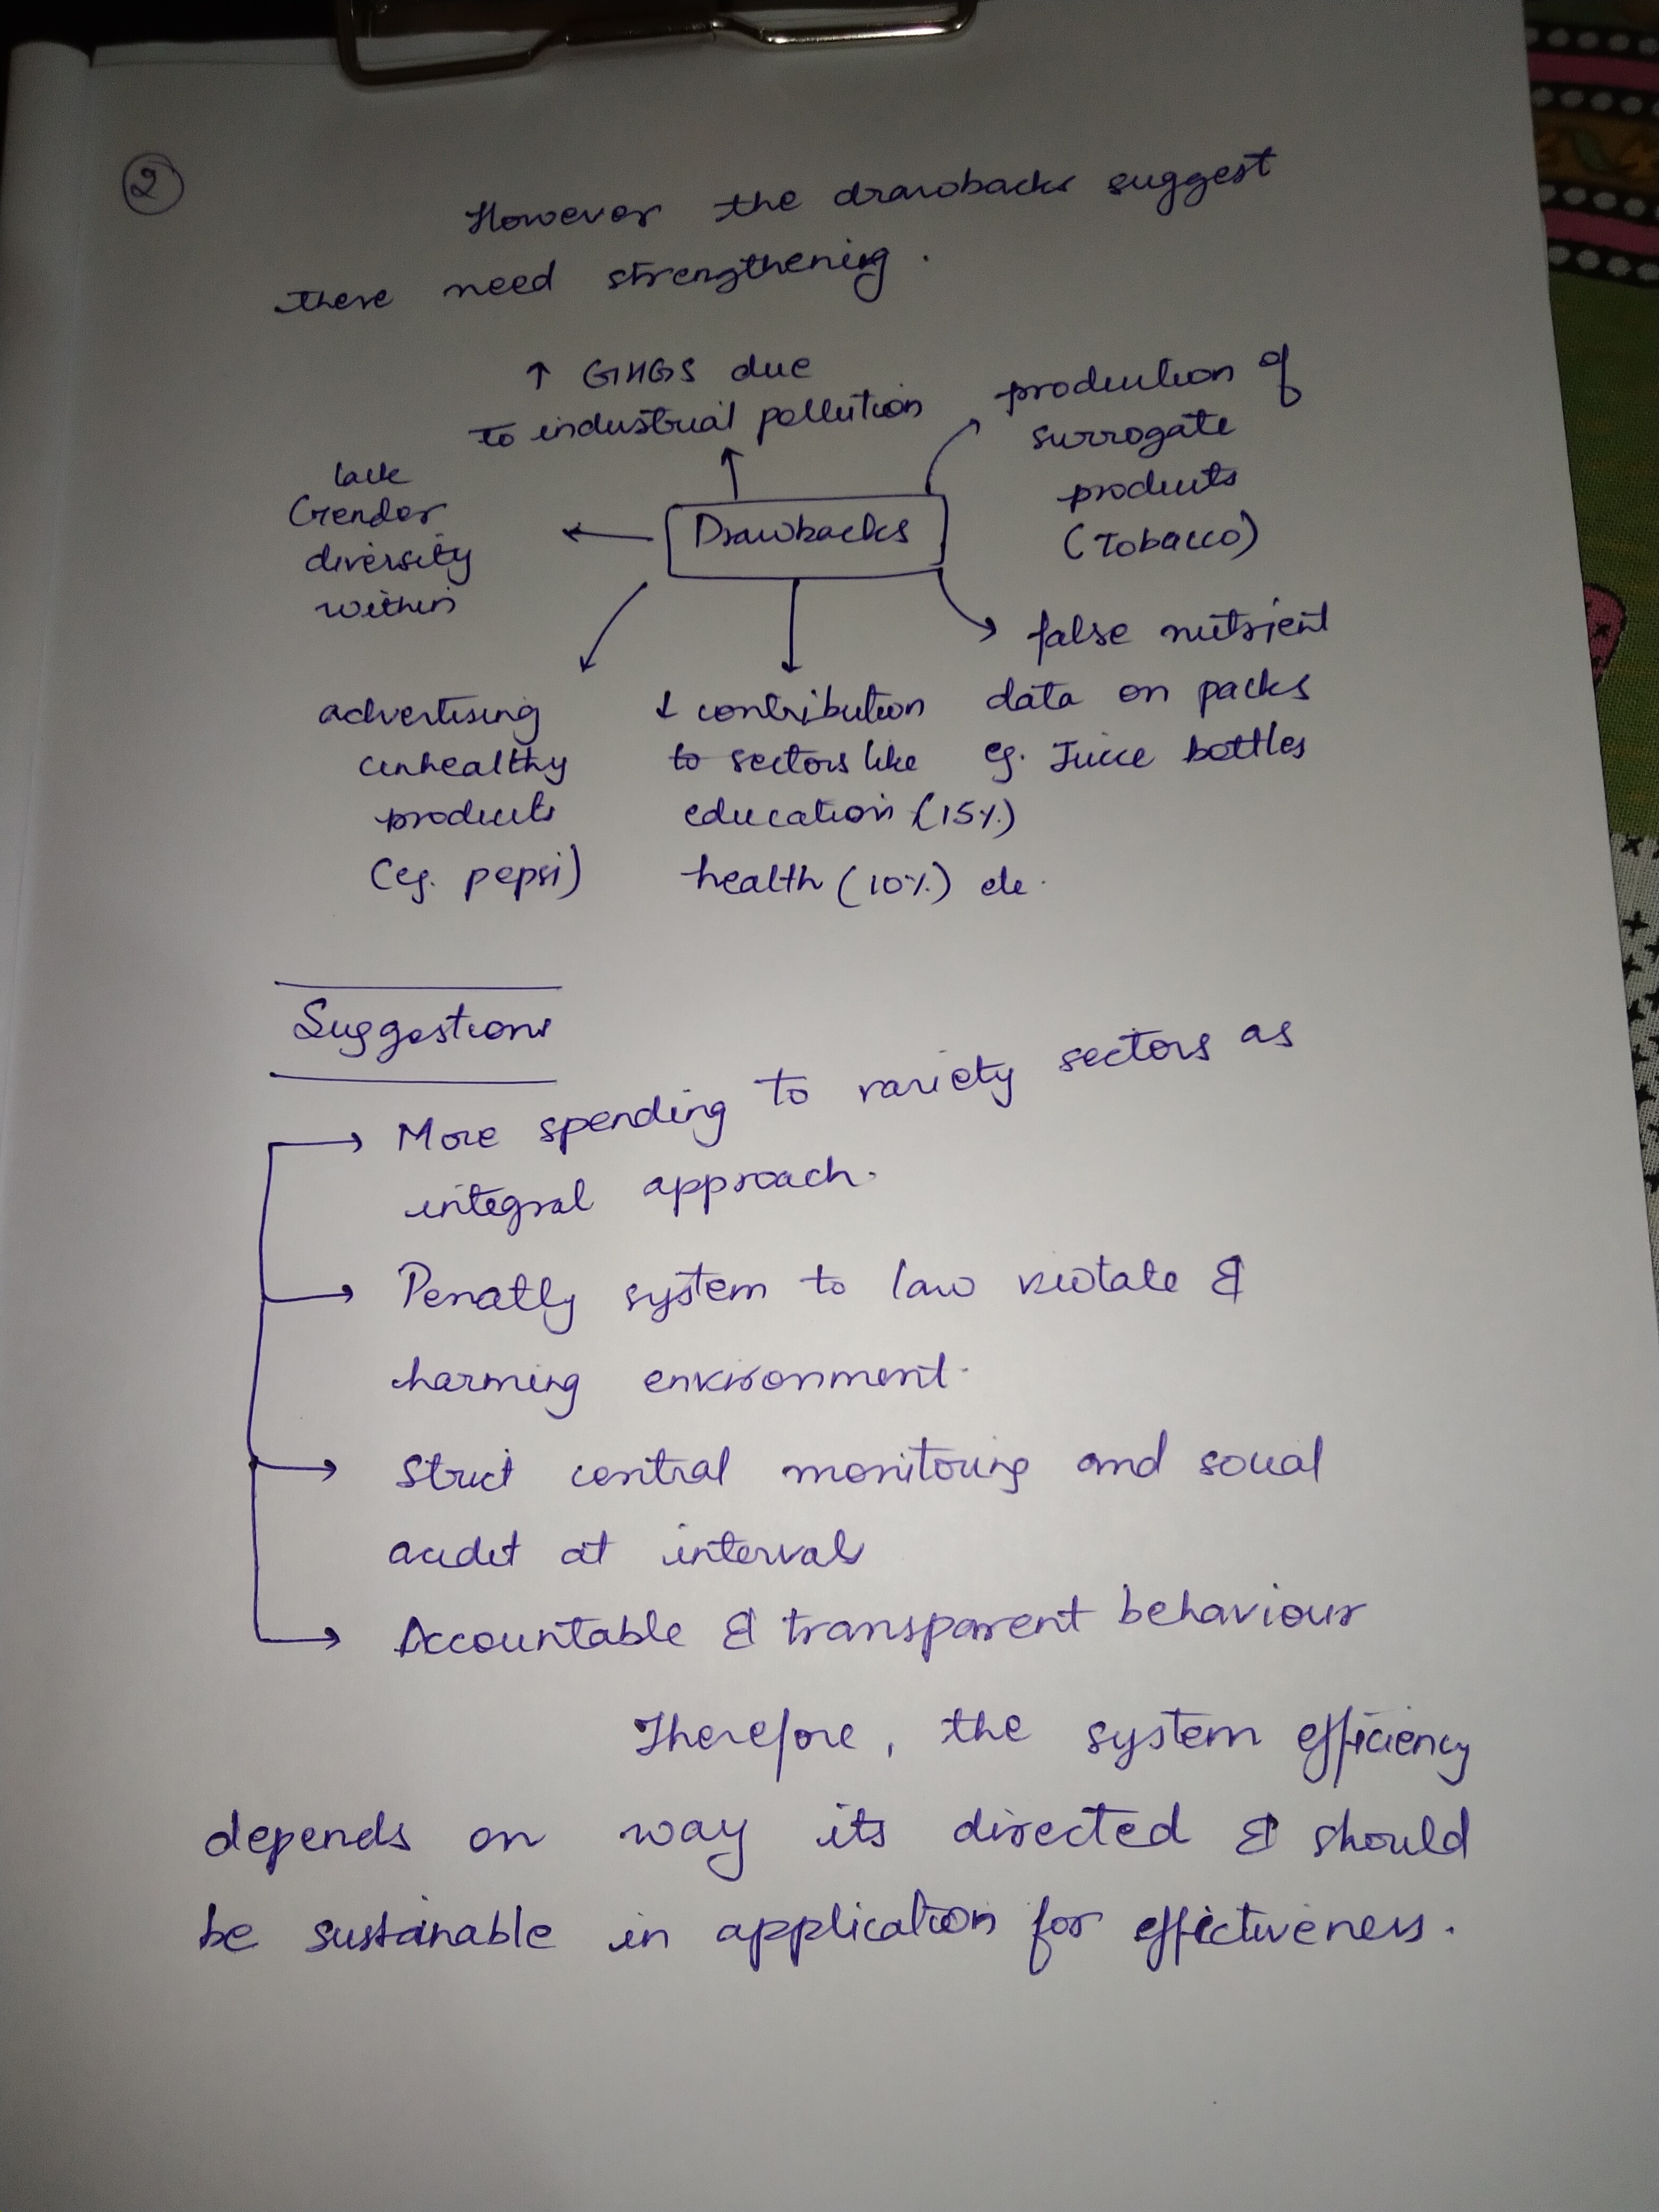 2
However the drawbacks suggest
there need strengthening.
↑ GHGS due
to industrial pollution
production of
surrogate
products
(Tobacco)
lack
Gender
diversity
within
Drawbacks
false nutrient
data on packs
eg. Juice bottles
advertising
unhealthy
products
(eg. pepsi)
↓ contribution
to sectors like
education (15%)
health (10%) etc.
Suggestions
→ More spending to variety sectors as
integral approach.
→ Penatly system to law violate &
harming environment.
→ Strict central monitoring and social
audit at intervals
→ Accountable & transparent behaviour
Therefore, the system efficiency
depends on way its directed & should
be sustainable in application for effectiveness.